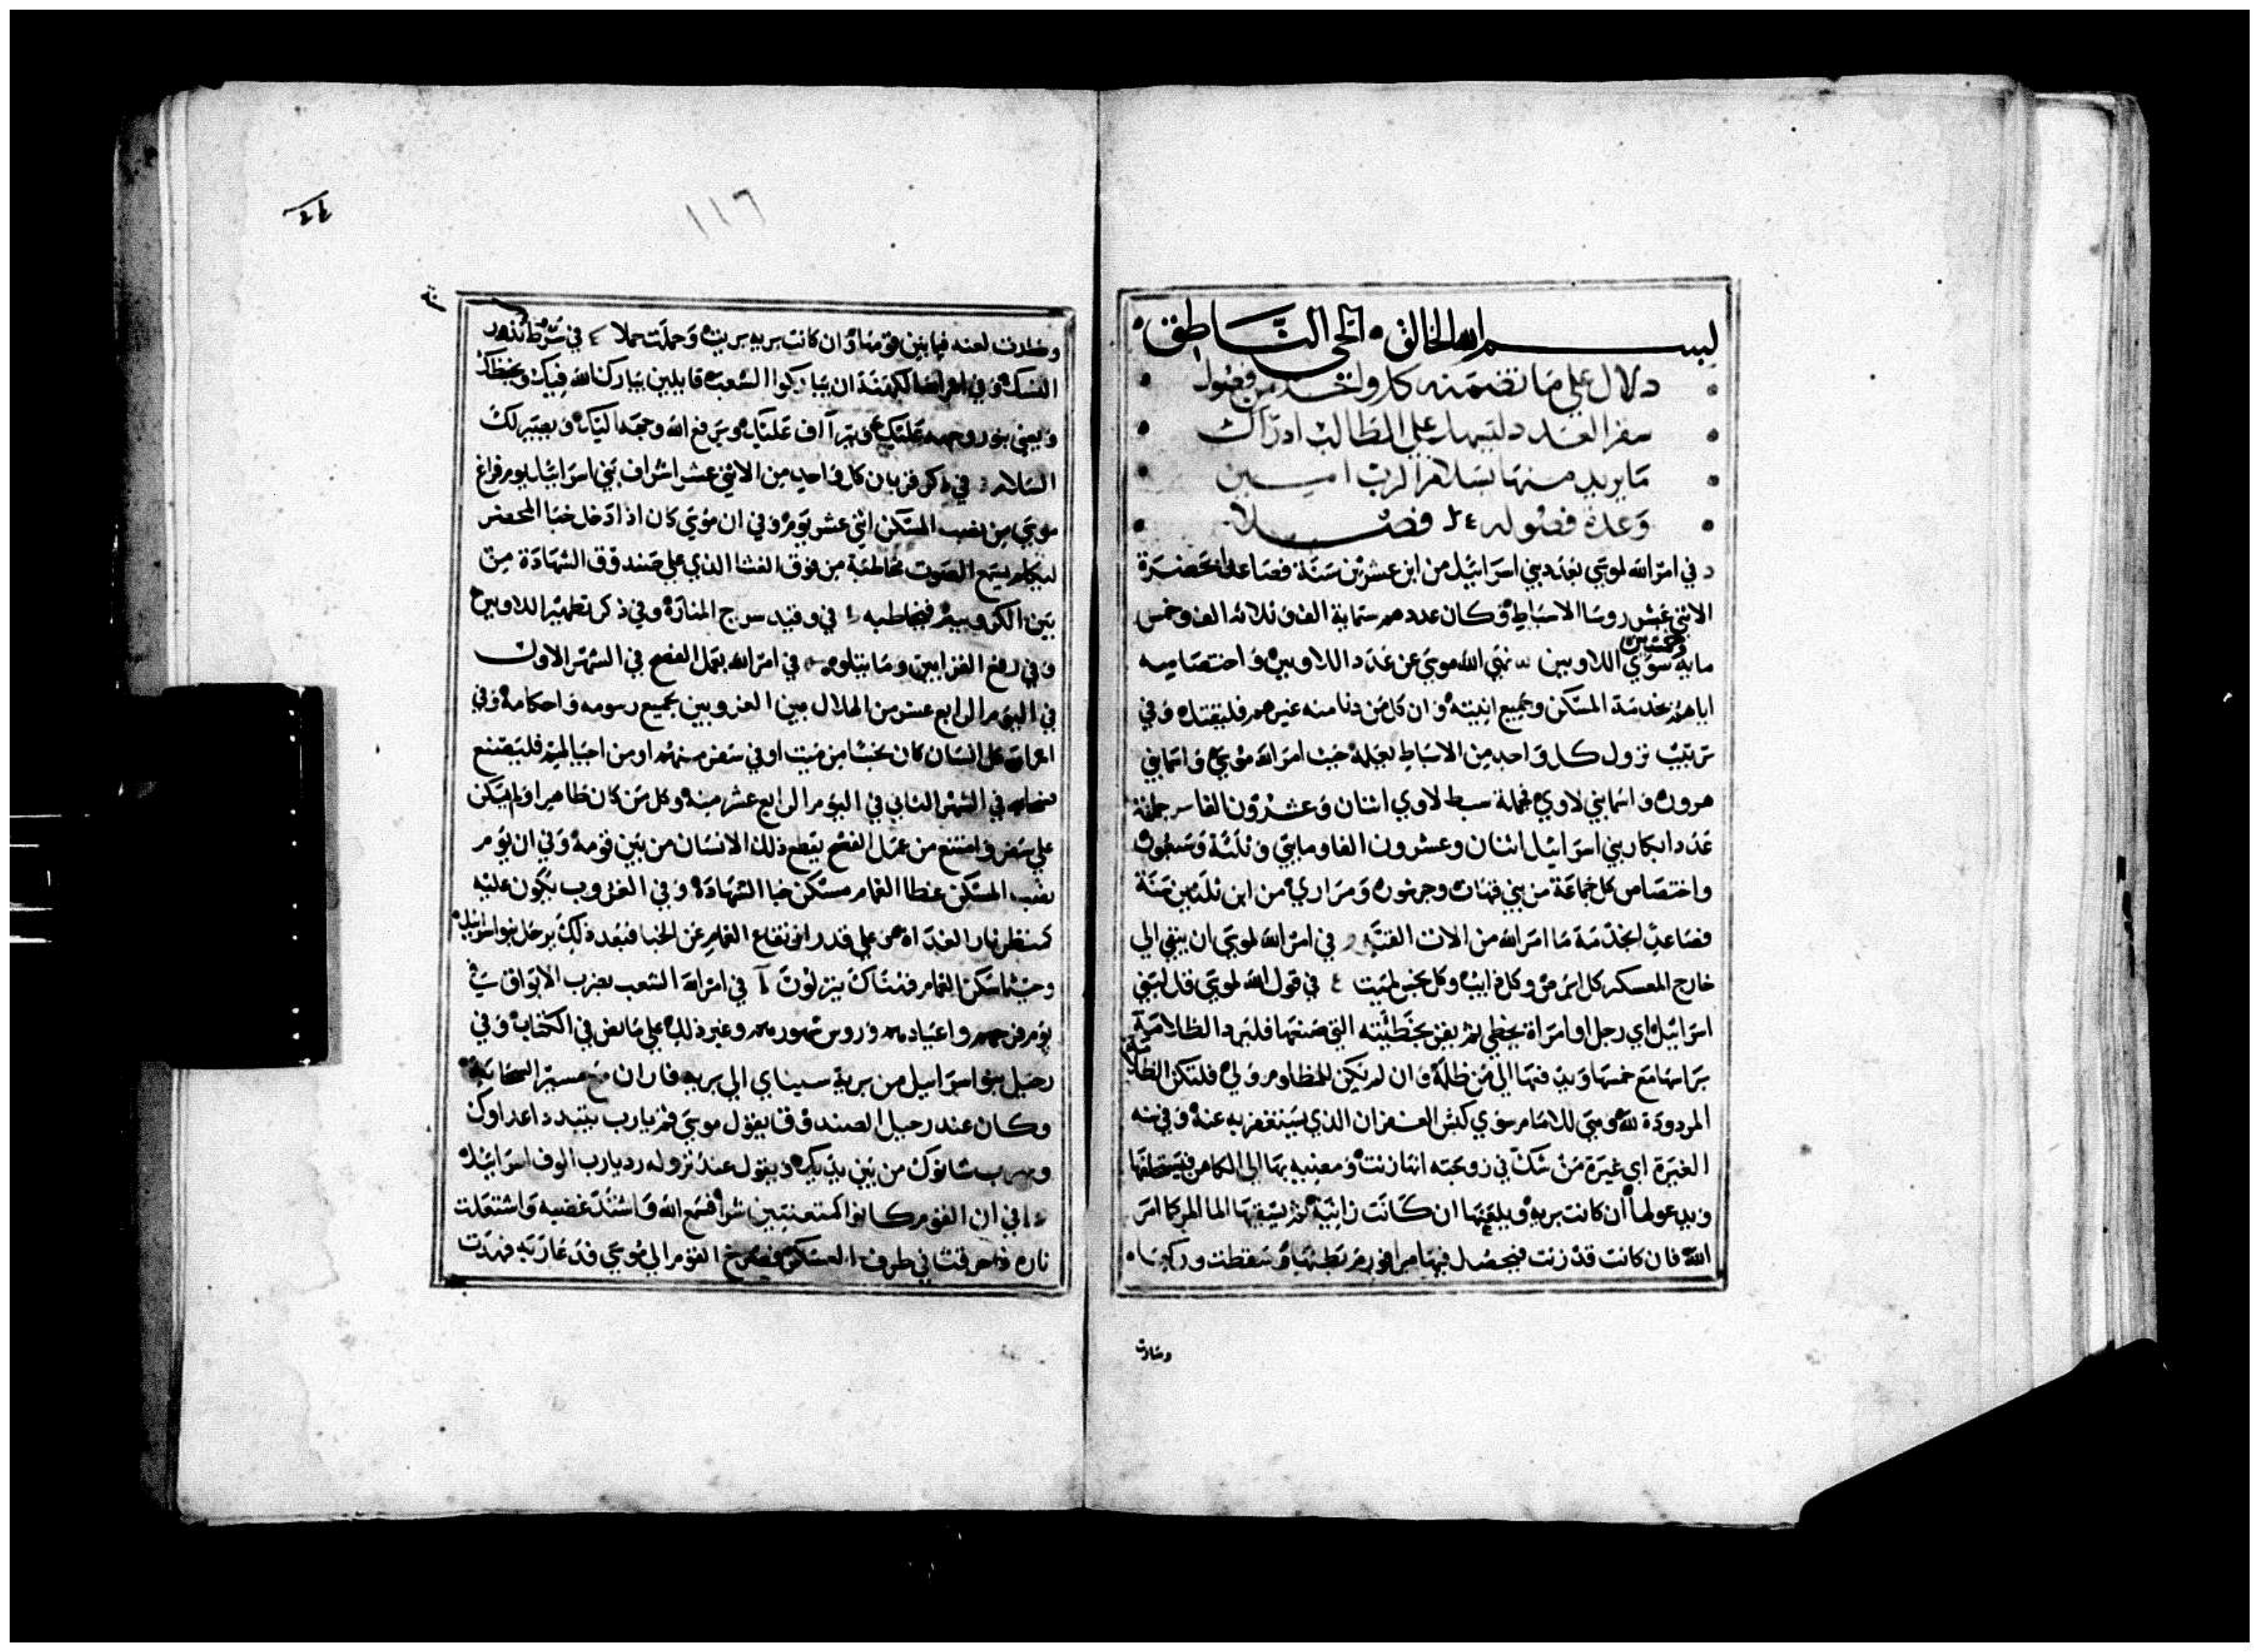 بسم الله الخالق الحي الناطق
دلال علي ما تضمنه كل واحد من فصول
سفر العدد دليها علي الطالب ادراك
ما يريد منها بسلام الرب امين
وعدة فصوله ٢٤ فصلا
في امر الله لموسي بعدد بني اسراييل من ابن عشرين سنة فصاعدا بحضرة
الاثني عشر روسا الاسباط وكان عددهم ستماية الف وثلاثه الف وخمس
ماية وخمسين سوي اللاويين نهي الله موسي عن عدد اللاويين واختصاصه
اياهم بخدمة المسكن وجميع انيته وان كل من دنا منه غيرهم فليقتل وفي
ترتيب نزول كل واحد من الاسباط بعلمه حيث امر الله موسي واسما بني
هرون واسما بني لاوي فجملة سبط لاوي اثنان وعشرون الفا
عدد ابكار بني اسراييل اثنان وعشرون الفا ومايتي وثلثة وسبعون
واختصاص كل جماعة من بني قهات وجرشون ومراري من ابن ثلثين سنة
فصاعدا لخدمة ما امر الله من الات القبة في امر الله لموسي ان ينفي الي
خارج المعسكر كل ابرص وكل ذايب وكل نجس لميت في قول الله لموسي قل لبني
اسراييل اي رجل او امراة يخطي ثم يقر بخطيته التي صنعها فليرد الظلامة
براسها مع خمسها ويدفعها الي من ظلمه وان لم يكن للمظلوم ولي فلتكن الظلامة
المردودة لله وهي للامام سوي كبش الغفران الذي يستغفر به عنه وفي سنه
الغيرة اي غيرة من شك في زوجته انها زنت ومضيه بها الي الكاهن فيستحلفها
ويدعو لها ان كانت بريه ويلعنها ان كانت زانية ثم يسقيها الما المر كما امر
الله فان كانت قد زنت فيحصل فيها مرا فورم بطنها وسقطت وركها
وصارت
١١٦
٤٤
وصارت لعنه فيما بين قومها وان كانت بريه بريت وحملت حملا في شرط نذور
النسك وفي امر الله الكهنة ان يباركوا الشعب قايلين يبارك الله فيك ويحفظك
ويضي بنور وجهه عليك ويتراف عليك ويرفع الله وجهه اليك ويصير لك
السلام في ذكر قربان كل واحد من الاثني عشر اشراف بني اسراييل يوم فراغ
موسي من نصب المسكن اثني عشر يوم وفي ان موسي كان اذا دخل خبا المحضر
ليكلم يسمع الصوت مخاطبة من فوق الغشا الذي علي صندوق الشهادة من
بين الكروبيم فيخاطبه في وقيد سرج المنارة وفي ذكر تطهير اللاويين
وفي رفع القرابين وما يتلوه في امر الله بعمل الفصح في الشهر الاول
في اليوم الرابع عشر من الهلال بين الغروبين بجميع رسومه واحكامه وفي
امر كل انسان كان نجسا من ميت او في سفر منهم او من اجيالهم فليصنع
فصحا في الشهر الثاني في اليوم الرابع عشر منه وكل من كان طاهرا ولم يكن
علي سفر وامتنع من عمل الفصح يقطع ذلك الانسان من بين قومه وفي ان يوم
نصب المسكن غطا الغمام مسكن خبا الشهادة وفي الغروب يكون عليه
كمنظر نار الي الغداة علي قدر ارتفاع الغمام عن الخبا فبعد ذلك يرحل بنو اسراييل
وحيثما سكن الغمام فهناك ينزلون في امر الله الشعب بضرب الابواق في
يوم فرحهم واعيادهم وروس شهورهم وغير ذلك علي ما نص في الكتاب وفي
رحيل بنو اسراييل من برية سيناي الي برية فاران مع مسير السحابة
وكان عند رحيل الصندوق يقول موسي قم يارب يتبدد اعداوك
ويهرب شانوك من بين يديك ويقول عند نزوله رد يارب الوف اسراييل
في ان القوم كانوا كمتعنتين شرا فسمع الله واشتد غضبه واشتعلت
ناره واحرقت في طرف العسكر فصرخ القوم الي موسي فدعا ربه فهدت